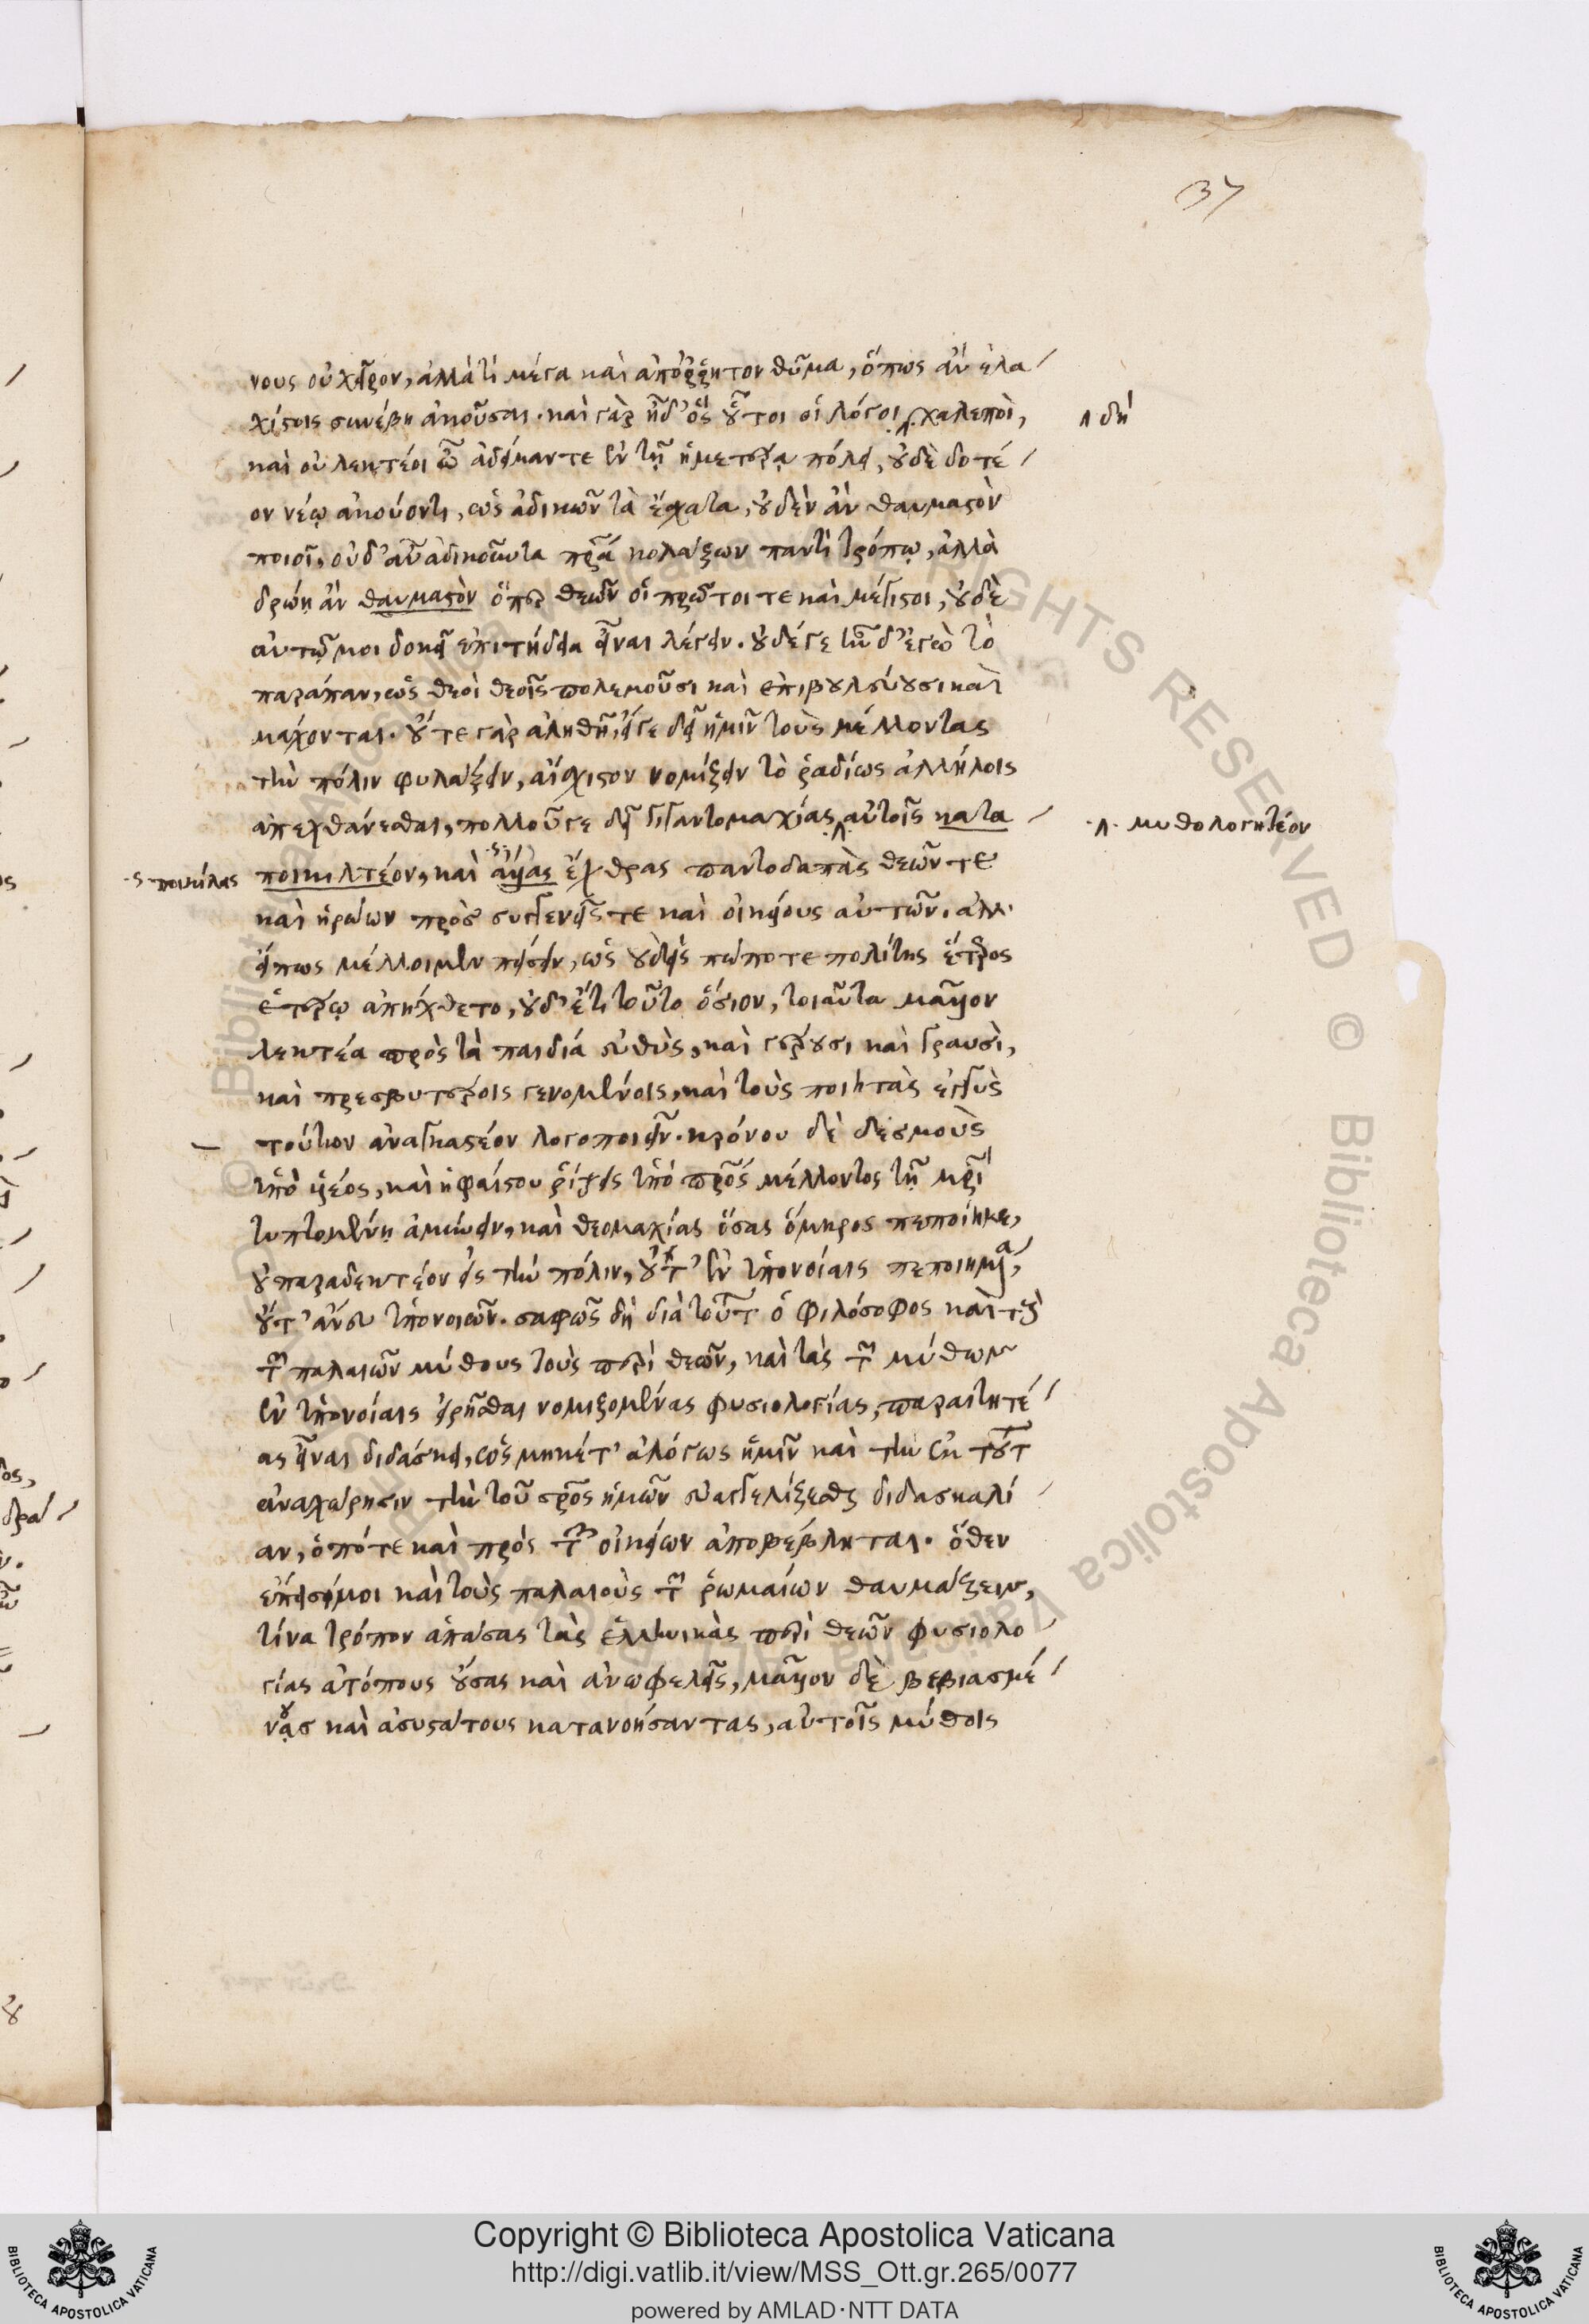 37
νους οὐ χοῖρον, ἀλλά τι μέγα καὶ ἀπόῤῥητον θῦμα, ὅπως ἂν ἐλα
χίστοις συνέβη ἀκοῦσαι. καὶ γὰρ ἦδ' ὃς οὗτοι οἱ λόγοι χαλεποὶ,
λ δή
καὶ οὐ λεκτέοι ὦ ἀδείμαντε ἐν τῇ ἡμετέρᾳ πόλει, οὐδὲ δοτέ
ον νέῳ ἀκούοντι, ὡς ἀδικῶν τὰ ἔσχατα, οὐδὲν ἂν θαυμαστὸν
ποιοῖ, οὐδ' αὖ ἀδικοῦντα πρα κολάζων παντὶ τρόπῳ, ἀλλὰ
δρῴη ἂν θαυμαστὸν ὅπερ θεῶν οἱ πρῶτοι τε καὶ μέγιστοι, οὐδὲ
αὐτῷ μοι δοκεῖ ἐπιτήδεια εἶναι λέγειν. οὐδέ γε τῆν δ' ἐγὼ τὸ
παράπαν, ὡς θεοὶ θεοῖς πολεμοῦσι καὶ ἐπιβουλεύουσι καὶ
μάχονται. οὔτε γὰρ ἀληθῆ, εἴ γε δεῖ ἡμῖν τοὺς μέλλοντας
τὴν πόλιν φυλάξειν, αἴσχιστον νομίζειν τὸ ῥαδίως ἀλλήλοις
ἀπεχθάνεσθαι, πολλοῦ γε δεῖ γιγαντομαχίας αὐτοῖς κατα
·λ· μυθολογητέον
ς ποικίλας
ποικιλτέον, καὶ ἄλλας ἔχθρας παντοδαπὰς θεῶν τε
καὶ ἡρώων πρὸς συγγενεῖς τε καὶ οἰκείους αὐτῶν. ἀλλ'
εἴπως μέλλοιμεν πείσειν, ὡς οὐδεὶς πώποτε πολίτης ἕτερος
ἑτέρῳ ἀπήχθετο, οὐδ' ἔτι τοῦτο ὅσιον, τοιαῦτα μᾶλλον
λεκτέα πρὸς τὰ παιδία εὐθὺς, καὶ γέρουσι καὶ γραυσὶ,
καὶ πρεσβυτέροις γενομένοις, καὶ τοὺς ποιητὰς ἐγγὺς
τούτων ἀναγκαστέον λογοποιεῖν. κρόνου δὲ δεσμοὺς
ὑπὸ ὑέος, καὶ ἡφαίστου ῥίψεις ὑπό πρς μέλλοντος τῇ μρὶ
τυπτομένῃ ἀμύνειν, καὶ θεομαχίας ὅσας ὅμηρος πεποίηκε,
οὐ παραδεκτέον εἰς τὴν πόλιν, οὔτ' ἐν ὑπονοίαις πεποιημα,
οὔτ' ἄνευ ὑπονοιῶν. σαφῶς δὴ διὰ τούτ ὁ φιλόσοφος καὶ τοὺς
τῶν παλαιῶν μύθους τοὺς περὶ θεῶν, καὶ τὰς τῶν μύθων
ἐν ὑπονοίαις εἰρῆσθαι νομιζομένας φυσιολογίας, παραιτητέ
ας εἶναι διδάσκει, ὡς μηκέτ' ἀλόγως ἡμῖν καὶ τὴν ἐκ τούτ
ἀναχώρησιν τὴν τοῦ σρος ἡμῶν εὐαγγελίζεσθαι διδασκαλί
αν, ὁπότε καὶ πρὸς τῶν οἰκείων ἀποβέβληται. ὅθεν
ἔπεισί μοι καὶ τοὺς παλαιοὺς τῶν ῥωμαίων θαυμάζειν,
τίνα τρόπον ἁπάσας τὰς ἑλληνικὰς περὶ θεῶν φυσιολο
γίας ἀτόπους οὔσας καὶ ἀνωφελεῖς, μᾶλλον δὲ βεβιασμέ
νας καὶ ἀσυστάτους κατανοήσαντας, αὐτοῖς μύθοις
Copyright © Biblioteca Apostolica Vaticana
http://digi.vatlib.it/view/MSS_Ott.gr.265/0077
powered by AMLAD·NTT DATA